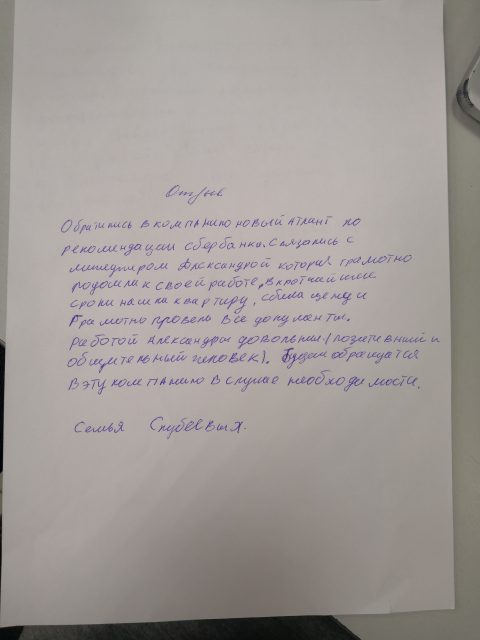 Отзыв
Обратились в компанию новый атлант по
рекомендации сбербанка. Связались с
менеджером Александрой которая грамотно
подошла к своей работе, в кротчайшие
сроки нашла квартиру, сбила цену и
грамотно провела все документы.
Работой Александры довольны (позитивный и
общительный человек). Будем обращатся
в эту компанию в случае необходимости.
Семья